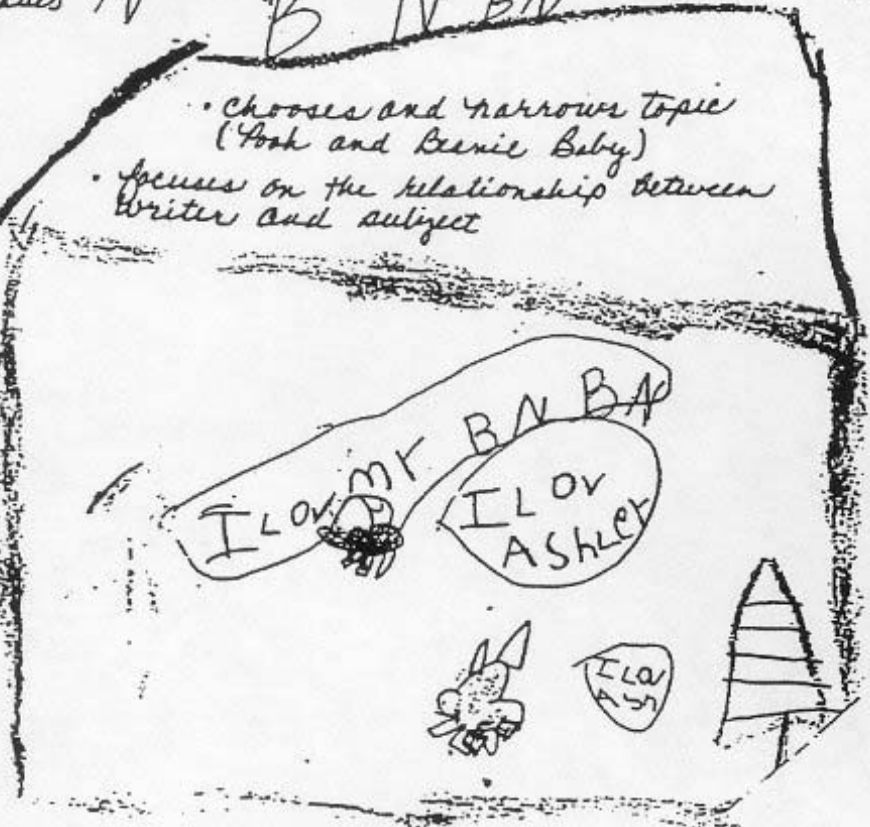 B N BN
• chooses and narrows topic
(Pooh and Beanie Baby)
• focuses on the relationship between
writer and subject
I LOV mr BN BN
I LOV
AShLey
I LOV
ASh